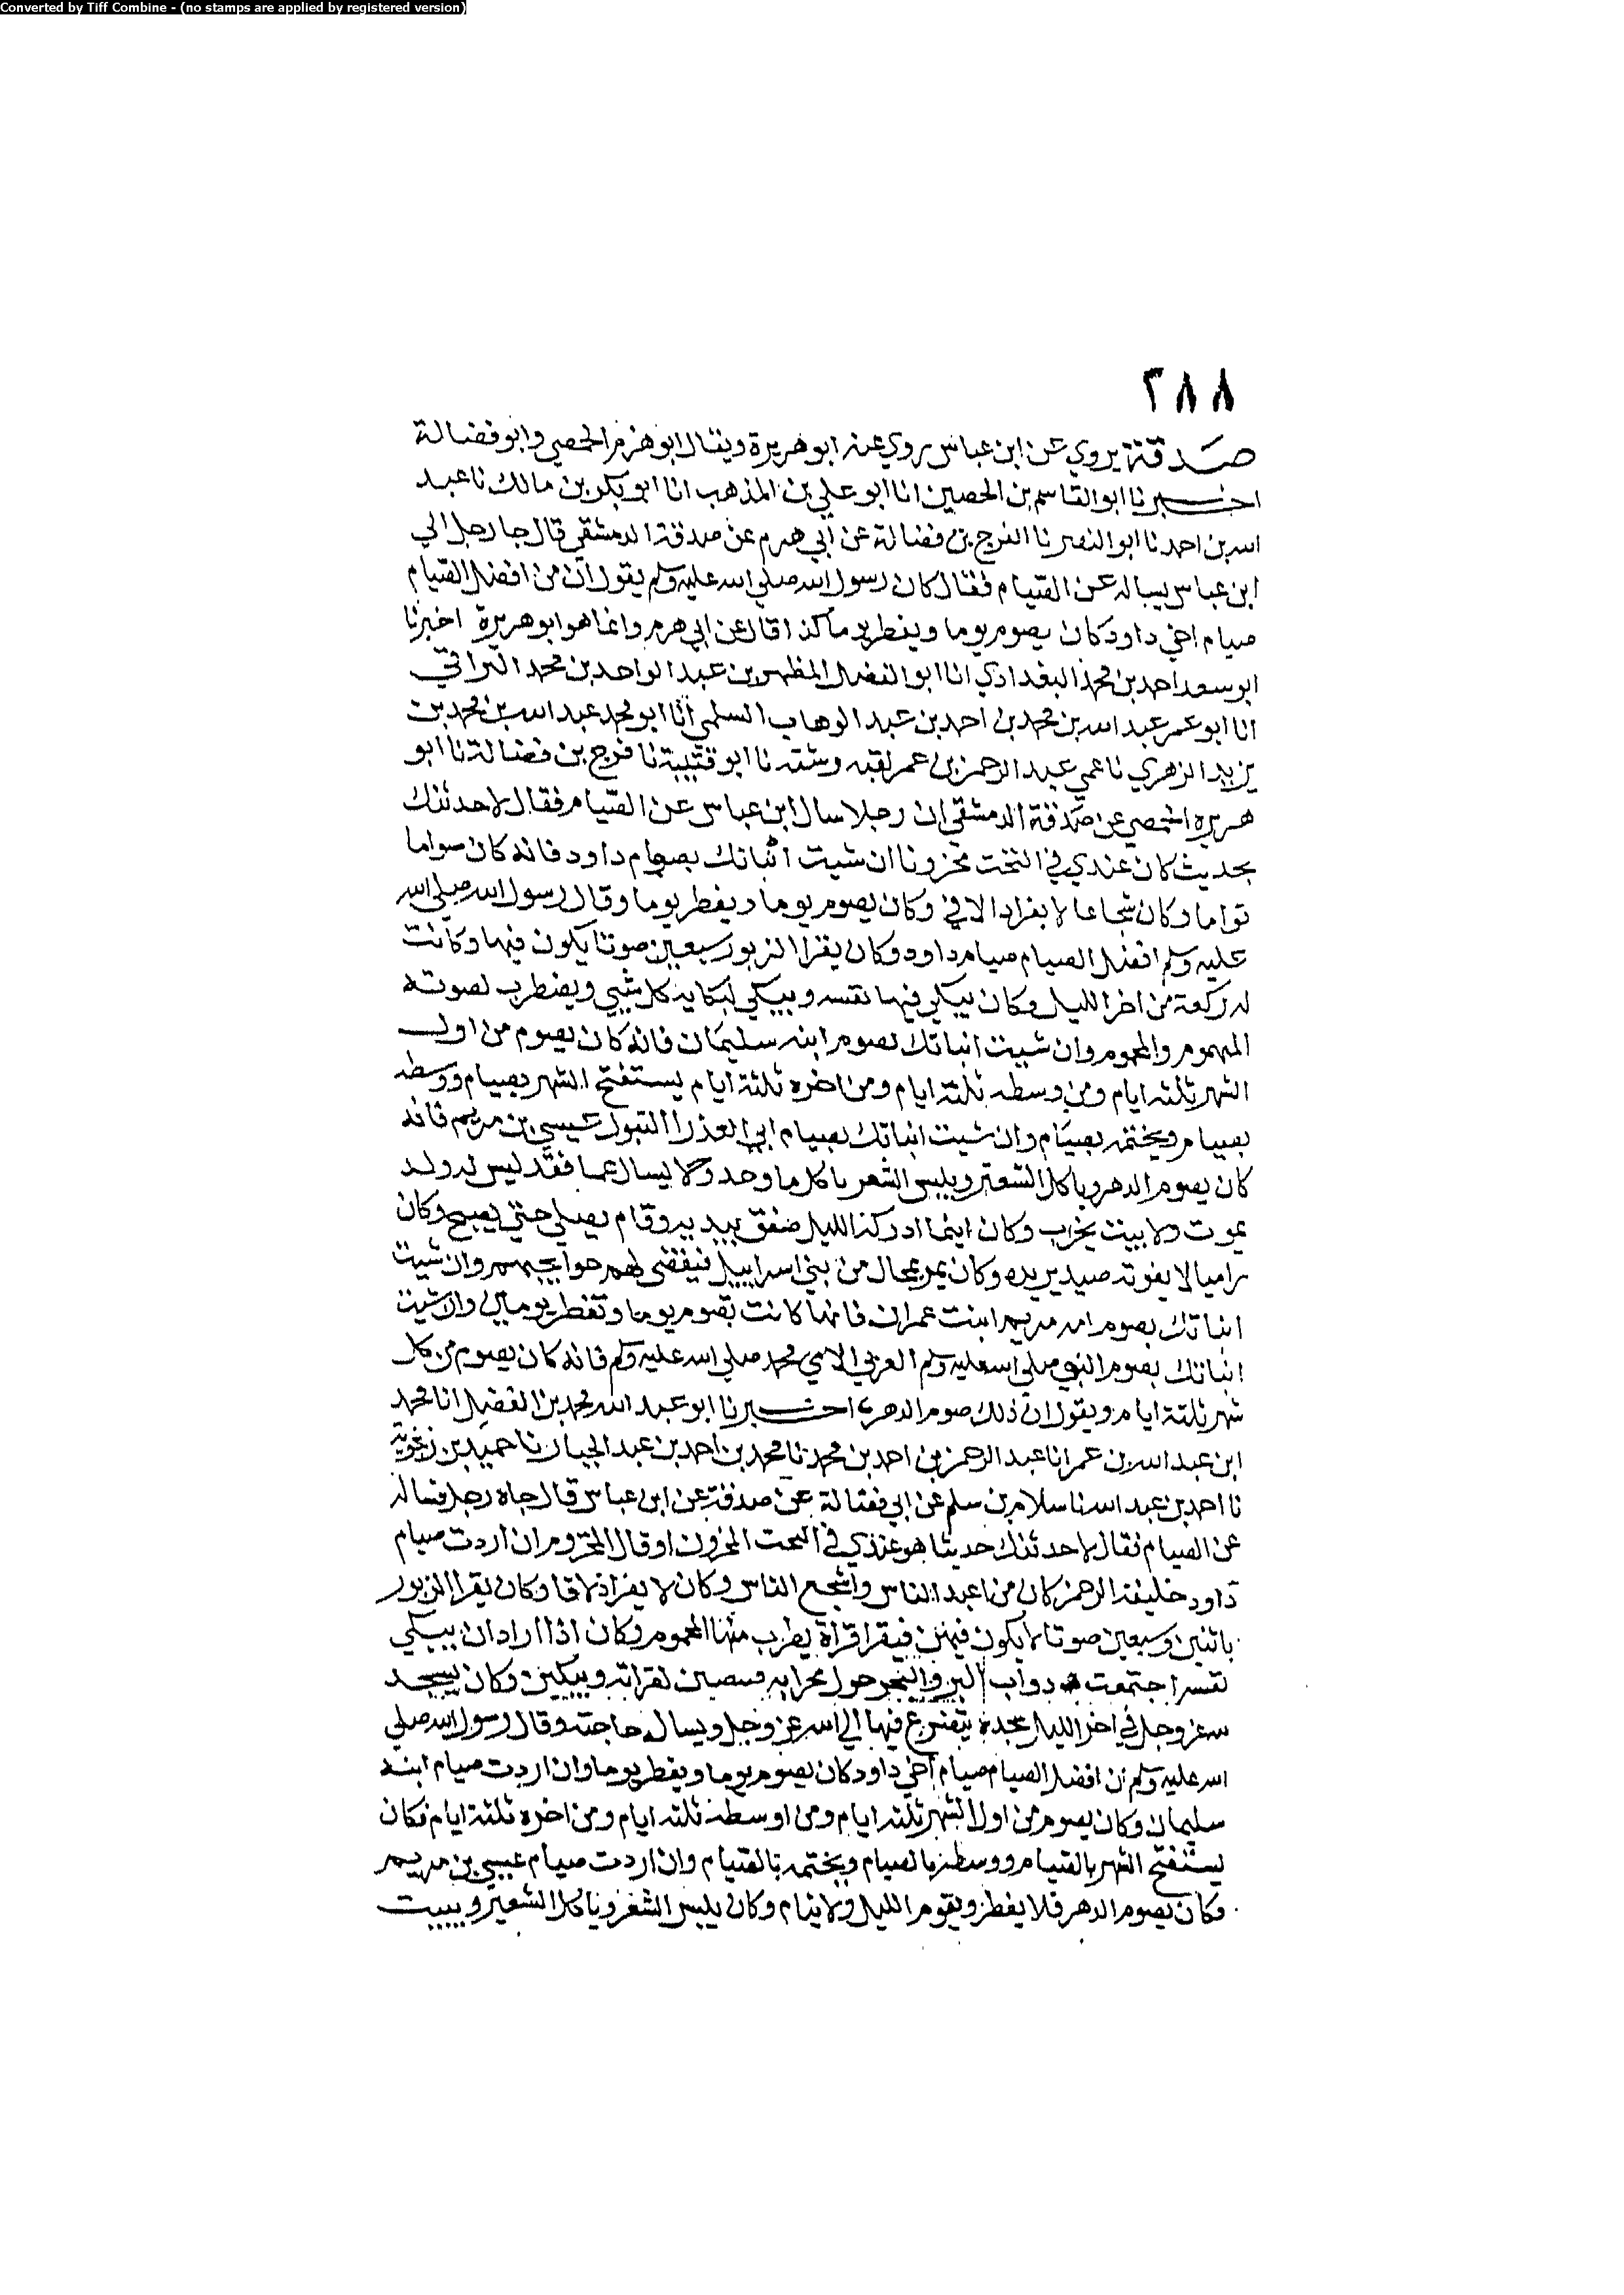 Converted by Tiff Combine - (no stamps are applied by registered version)
٢٨٨
صدقة يروي عن ابن عباس روي عنه ابو هريرة ويقال ابو هزم الحمصي وابو فضالة
اخبرنا ابو القاسم بن الحصين انا ابو علي بن المذهب انا ابو بكر بن مالك نا عبد
الله بن احمد نا ابو النصر نا الفرج بن فضالة عن أبي هرم عن صدقة الدمشقي قال جا رجل الي
ابن عباس يساله عن الصيام فقال كان رسول الله صلي الله عليه وسلم يقول ان من افضل الصيام
صيام اخي داود كان يصوم يوما ويفطر يوما كذا قال عن ابي هرم وانما هو ابو هريرة اخبرنا
ابو سعد احمد بن محمد البغدادي انا ابو الفضل المطهر بن عبد الواحد بن محمد البراني
انا ابو عمر عبد الله بن محمد بن احمد بن عبد الوهاب السلمي انا ابو محمد عبد الله بن محمد بن
يزيد الزهري نا عمي عبد الرحمن بن عمر لقبه رسته نا ابو قتيبة نا فرج بن فضالة نا ابو
هريره الحمصي عن صدقة الدمشقي ان رجلا سال ابن عباس عن الصيام فقال لاحدثنك
بحديث كان عندي في التخت مخزونا ان شيت انباتك بصوم داود فانه كان صواما
قواما وكان شجاعا لا يفر اذا لاقي وكان يصوم يوما ويفطر يوما وقال رسول الله صلي الله
عليه وسلم افضل الصيام صيام داود وكان يقرا الزبور سبعين صوتا يكون فيها وكانت
له ركعة من اخر الليل وكان يبكي فيها نفسه ويبكي لبكايه كل شيي ويضطرب لصوته
المهموم والمحموم وان شيت انباتك بصوم ابنه سليمان فانه كان يصوم من اول
الشهر ثلثه ايام ومن وسطه ثلثة ايام ومن اخره ثلثة ايام يستفتح الشهر بصيام ووسطه
بصيام ويختمه بصيام وان شيت انباتك بصيام ابن العذرا البتول عيسي بن مريم فانه
كان يصوم الدهر وياكل الشعير ويلبس الشعر ياكل ما وجد ولا يسال عما فقد ليس له ولد
يموت ولا بيت يخرب وكان اينما ادركه الليل صفق بيديه وقام يصلي حتي يصبح وكان
راميا لا يفوته صيد يريده وكان يمر بمجال من بني اسراييل فيقضي لهم حوايجهم وان شيت
انباتك بصوم امه مريم ابنت عمران فانها كانت تصوم يوما وتفطر يومين وان شيت
انباتك بصوم النبي صلي الله عليه وسلم العربي الامي محمد صلي الله عليه وسلم فانه كان يصوم من كل
شهر ثلثة ايام ويقول ان ذلك صوم الدهر اخبرنا ابو عبد الله محمد بن الفضل انا محمد
ابن عبد الله بن عمر انا عبد الرحمن بن احمد بن محمد نا محمد بن احمد بن عبد الجبار نا حميد بن زنجوية
نا احمد بن عبد الله نا سلام بن سلم عن ابي فضالة عن صدقة عن ابن عباس قال جاه رجل فساله
عن الصيام فقال لاحدثنك حديثا هو عندي في المخزون او قال المخزوم ان اردت صيام
داود خليفة الرحمن كان من اعبد الناس واشجع الناس وكان لا يفر اذا لاقا وكان يقرا الزبور
باثنين وسبعين صوتا يكون فيهن فيقرا قراة يطرب منها المحموم وكان اذا اراد ان يبكي
نفسه اجتمعت دواب البر والبحر حول محرابه لقراته ويبكين وكان يسجد
لله عز وجل في اخر الليل سجدة يتضرع فيها الي الله عز وجل ويساله حاجته وقال رسول الله صلي
الله عليه وسلم ان افضل الصيام صيام اخي داود كان يصوم يوما ويفطر يوما وان اردت صيام ابنه
سليمان وكان يصوم من اول الشهر ثلثه ايام ومن اوسطه ثلثه ايام ومن اخره ثلثة ايام فكان
يستفتح الشهر بالصيام ووسطه بالصيام ويختمه بالصيام وان اردت صيام عيسي بن مريم
فكان يصوم الدهر فلا يفطر ويقوم الليل ولا ينام وكان يلبس الشعر وياكل الشعير ويبيت